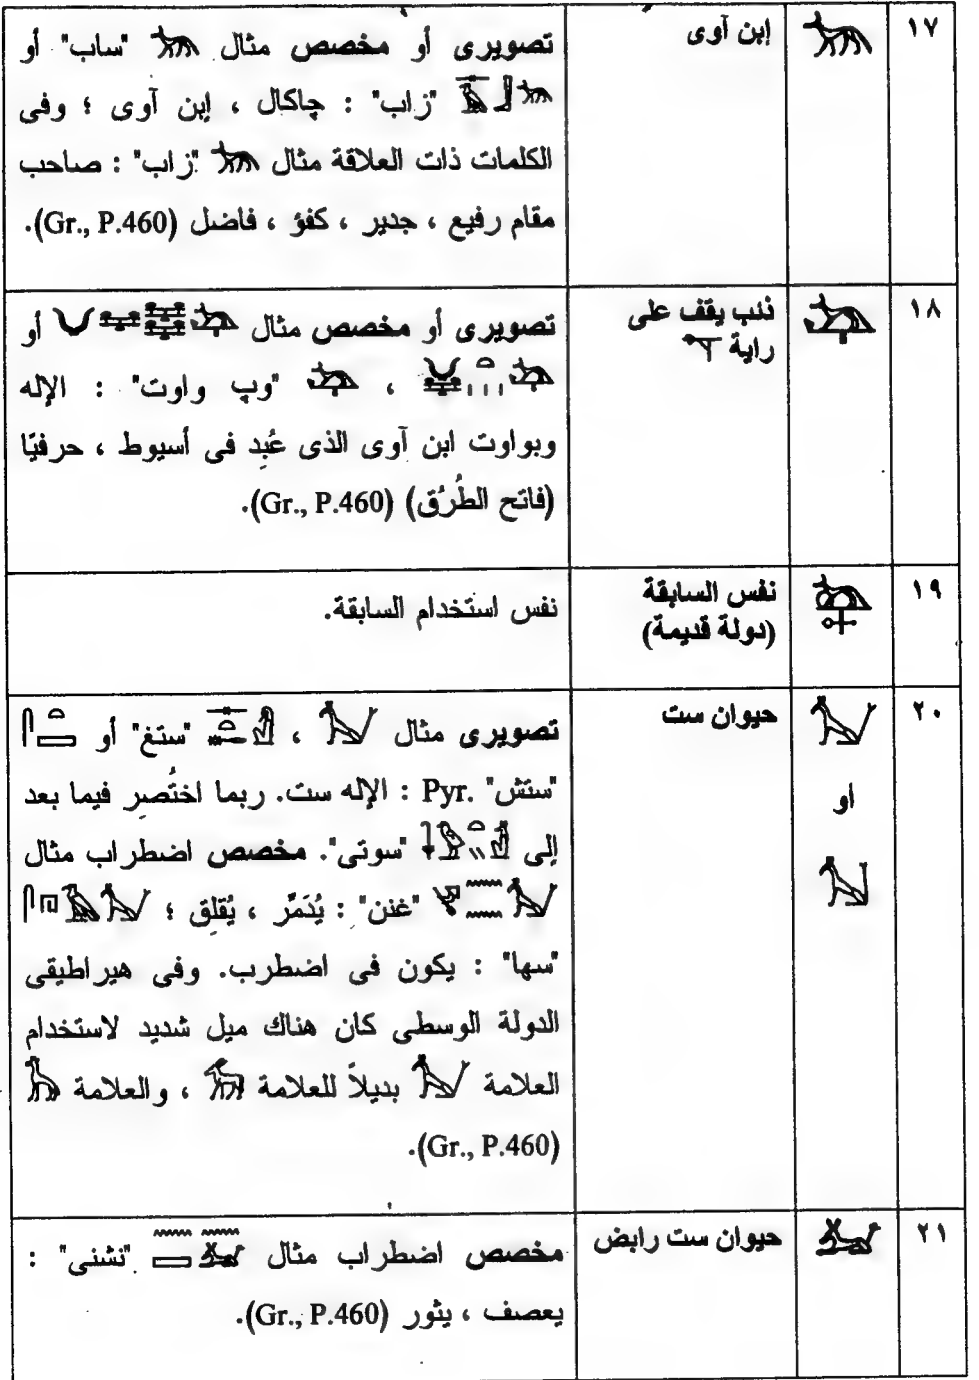 ١٧ إبن آوى تصويرى أو مخصص مثال "ساب" أو
"زاب" : چاكال ، إبن آوى ؛ وفى
الكلمات ذات العلاقة مثال "زاب" : صاحب
مقام رفيع ، جدير ، كفؤ ، فاضل (Gr., P.460).
١٨ ذئب يقف على تصويرى أو مخصص مثال أو
راية
، "وپ واوت" : الإله
وبواوت ابن آوى الذى عُبِد فى أسيوط ، حرفيًا
(فاتح الطُرُق) (Gr., P.460).
١٩ نفس السابقة نفس استخدام السابقة.
(دولة قديمة)
٢٠ حيوان ست تصويرى مثال ، "ستغ" أو
أو "ستش" .Pyr : الإله ست. ربما اختُصِر فيما بعد
إلى "سوتى". مخصص اضطراب مثال
"غنن" : يُدَمَّر ، يُقلِق ؛
"سها" : يكون فى اضطرب. وفى هيراطيقى
الدولة الوسطى كان هناك ميل شديد لاستخدام
العلامة بديلاً للعلامة ، والعلامة
(Gr., P.460).
٢١ حيوان ست رابض مخصص اضطراب مثال "نشنى" :
يعصف ، يثور (Gr., P.460).